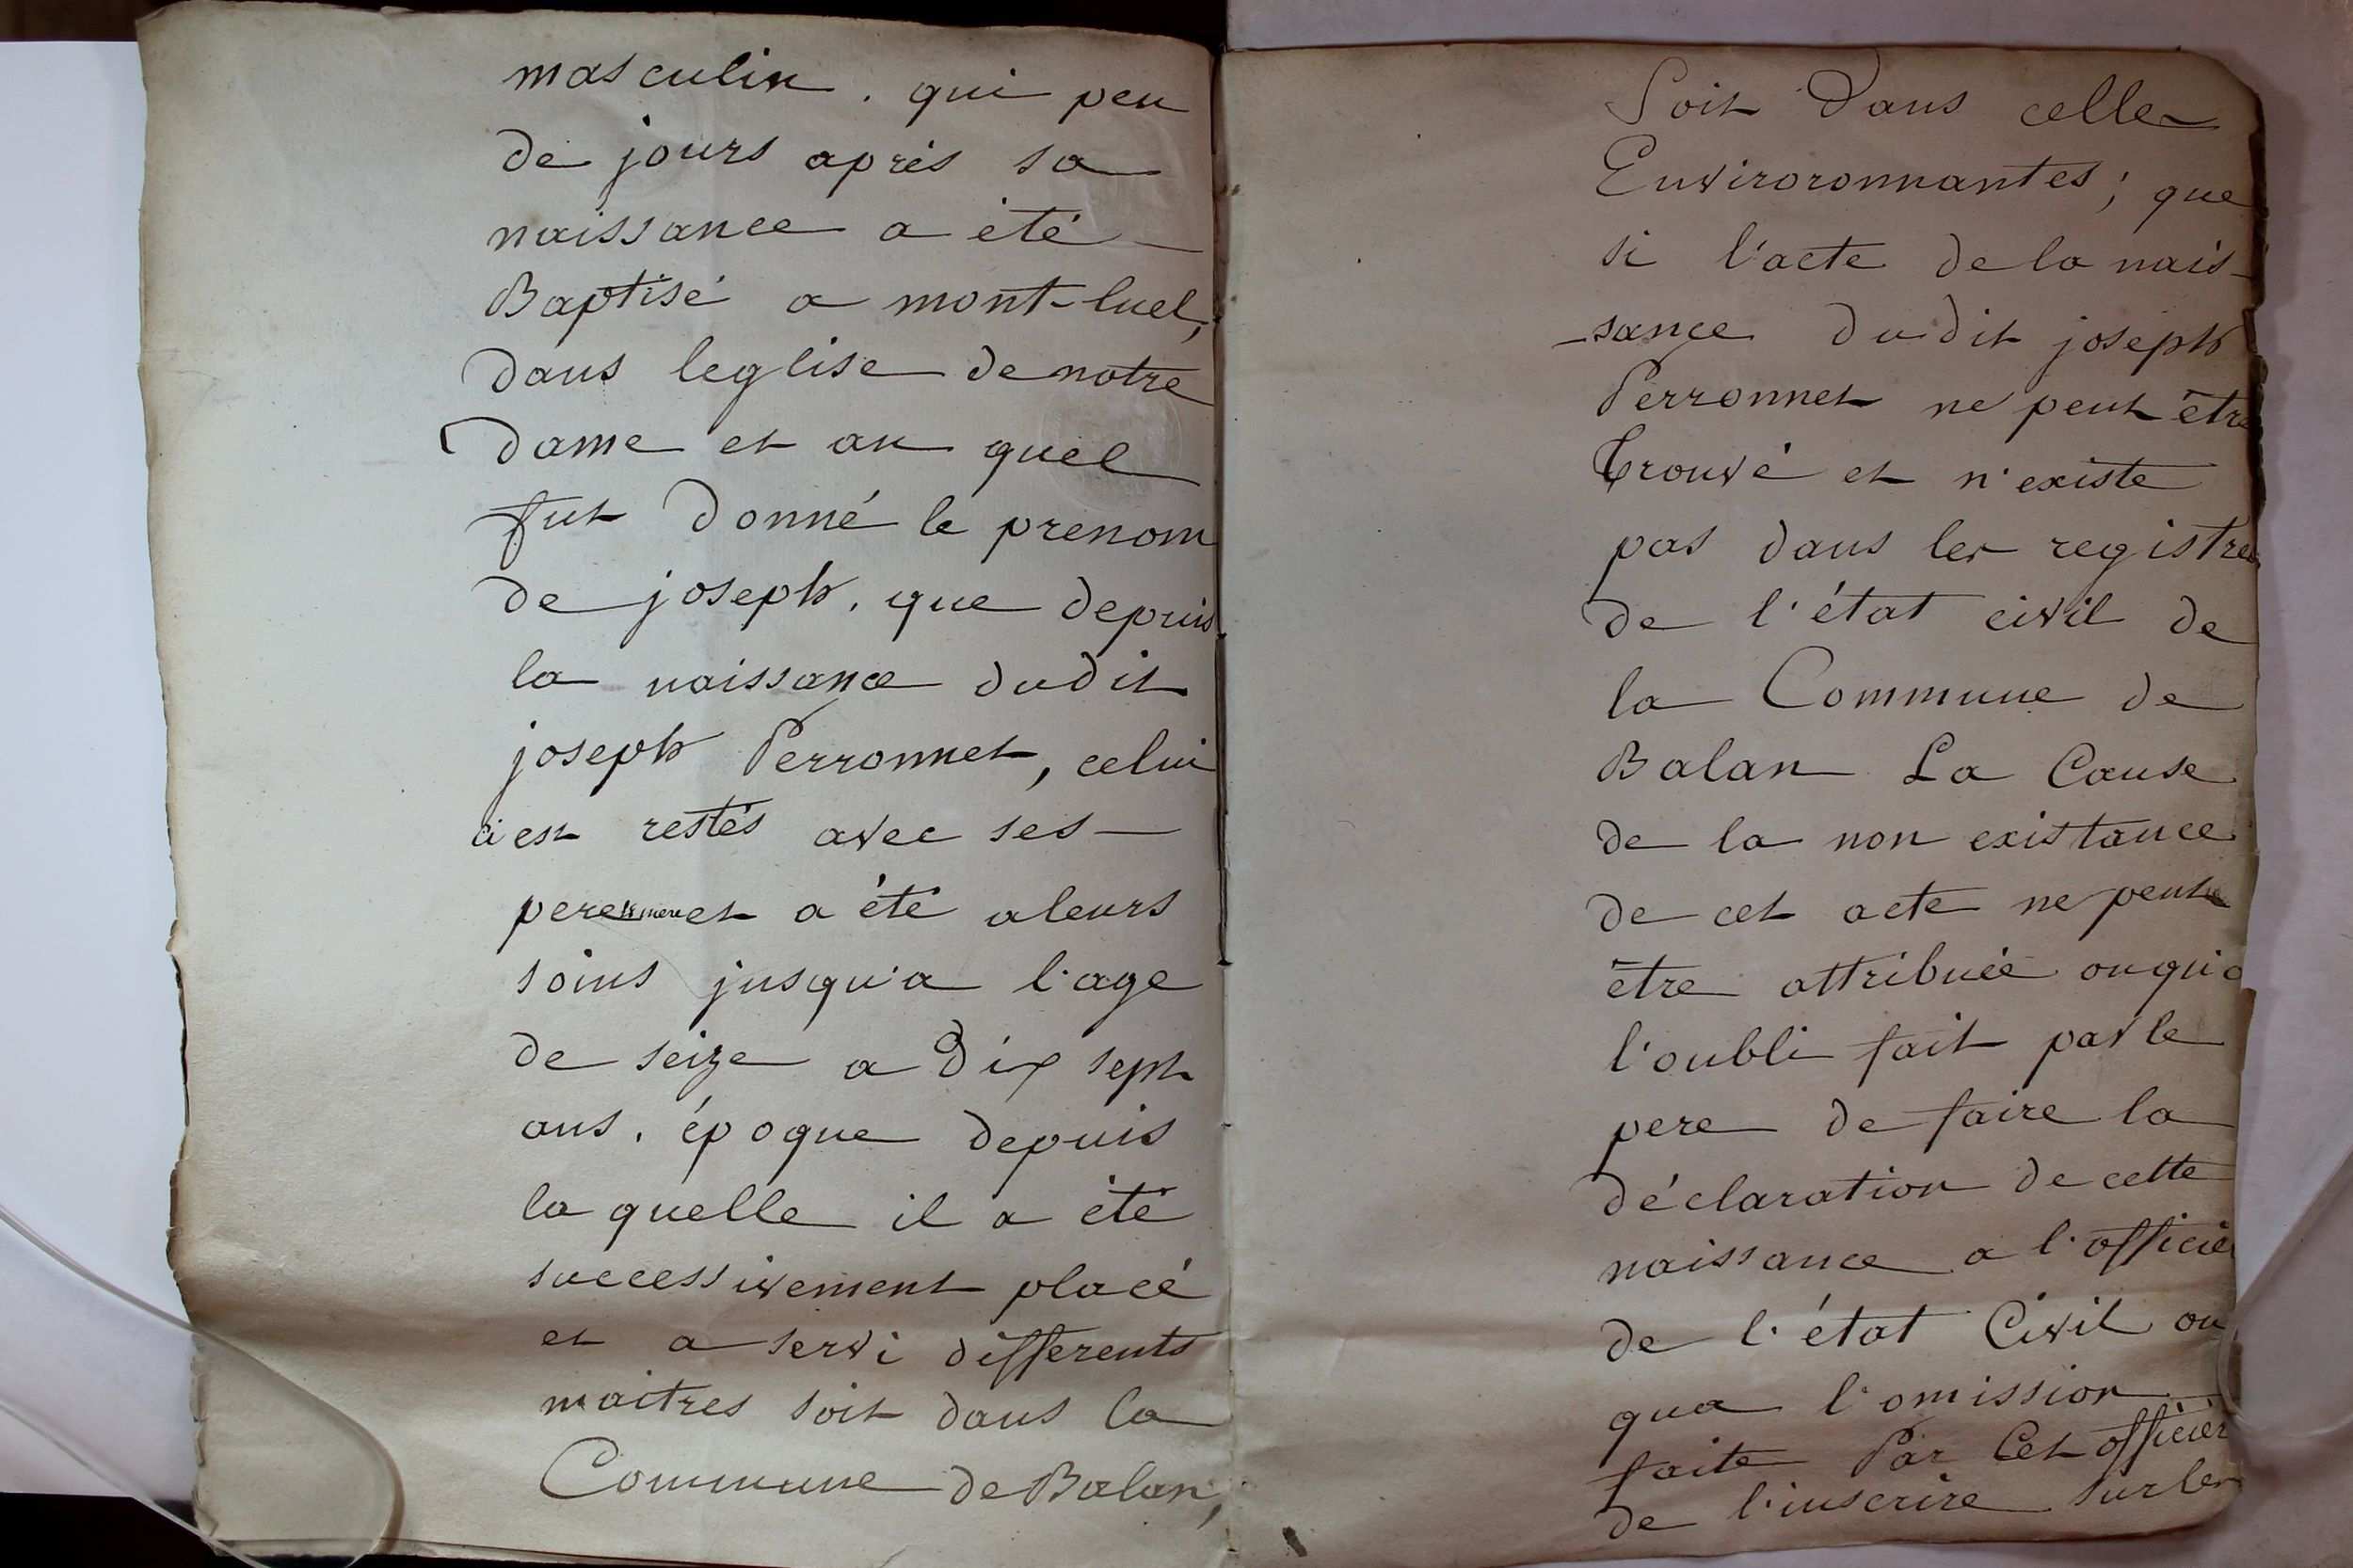 masculin. qui peu
de jours après sa
naissance a été
Baptisé a mont-luel,
dans leglise de notre
dame et au quel
fut donné le prenom
de joseph. que depuis
la naissance dudit
joseph Perronnet, celui
ci est restés avec ses
pere & mere et a été a leurs
soins jusqu'a l'age
de seize a dix sept
ans. époque depuis
la quelle il a été
successivement placé
et a servi differents
maitres soit dans la
Commune de Balan,
Soit dans celles
Enviroronnantes; que
si l'acte de la nais-
-sance dudit joseph
Perronnet ne peut être
trouvé et n'existe
pas dans les registres
de l'état civil de
la Commune de
Balan La Cause
de la non existance
de cet acte ne peut
être attribuée ou qu'a
l'oubli fait par le
pere de faire la
déclaration de cette
naissance a l'officier
de l'état Civil ou
qua l'omission
faite Par Cet officier
de l'inscrire sur les